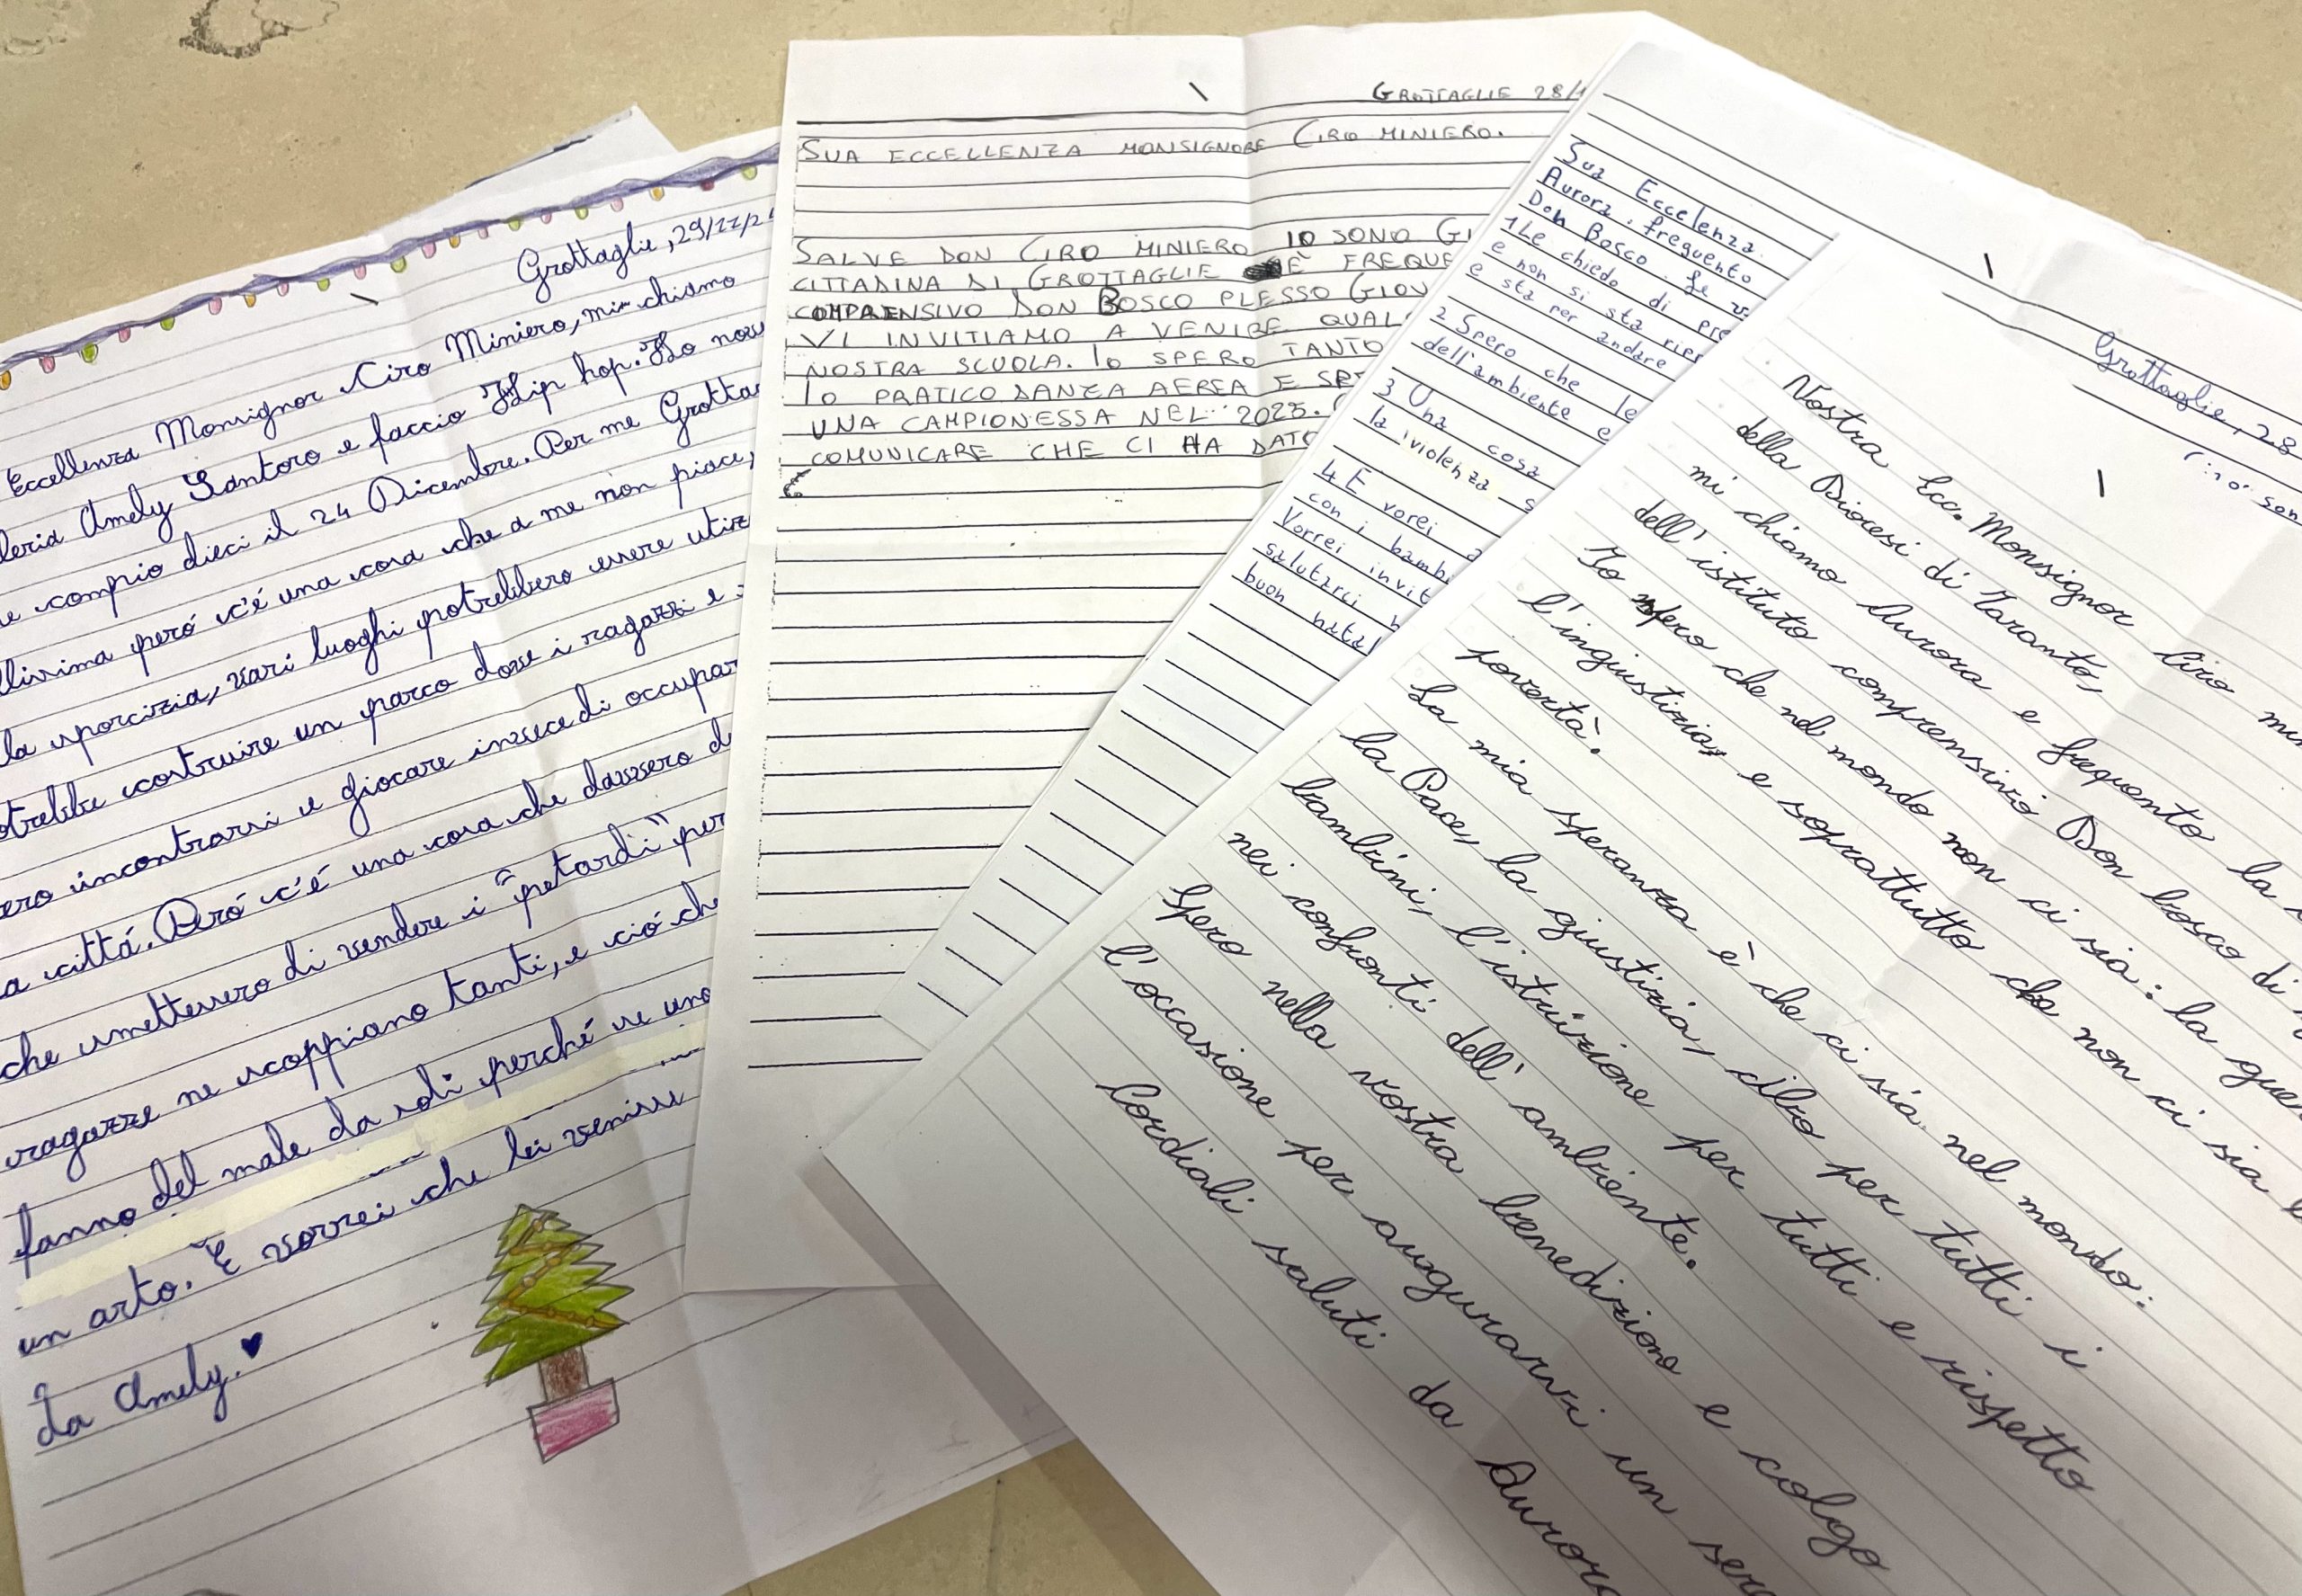 Grottaglie, 29/11/2
Eccellenza Monsignor Ciro Miniero, mi chiamo
Amely Santoro e faccio Hip hop. Ho nov
e compio dieci il 24 Dicembre. Per me Grottag
però c'é una cosa che a me non piace,
la sporcizia, vari luoghi potrebbero essere utiz
otrebbe costruire un parco dove i ragazzi e
ero incontrarsi e giocare invece di occupar
a cittá. Peró c'é una cosa che davvero d
che smettessero di vendere i "petardi" per
ragazze ne scoppiano tanti, e ció che
fanno del male da soli perché se uno
un arto. E vorrei che lei venisse
Da Amely.
GROTTAGLIE 28/1
SUA ECCELLENZA MONSIGNORE CIRO MINIERO.
SALVE DON CIRO MINIERO IO SONO GI
CITTADINA DI GROTTAGLIE È FREQUE
COMPRENSIVO DON BOSCO PLESSO GIOV
VI INVITIAMO A VENIRE QUAL
NOSTRA SCUOLA. IO SPERO TANTO
IO PRATICO DANZA AEREA E SPE
UNA CAMPIONESSA NEL 2025.
COMUNICARE CHE CI HA DATO
Sua Eccelenza
Aurora. frequento
Don Bosco. Le v
1 Le chiedo di pre
e non si sta risp
e sta per andare
2 Spero che le
dell'ambiente e
3 Una cosa
la violenza s
4 E vorei a
con i bamb
Vorrei invit
salutarci
buon natal
Grottaglie, 28
Vostra Ecc. Monsignor Ciro min
della Diocesi di Taranto,
mi chiamo Aurora e frequento la
dell'istituto comprensivo Don bosco di
Io spero che nel mondo non ci sia: la guer
l'ingiustizia, e soprattutto che non ci sia l
povertà.
La mia speranza è che ci sia nel mondo:
la Pace, la giustizia, cibo per tutti i
bambini, l'istruzione per tutti e rispetto
nei confronti dell'ambiente.
Spero nella vostra benedizione e colgo
l'occasione per augurarvi un sere
Cordiali saluti da Aurora